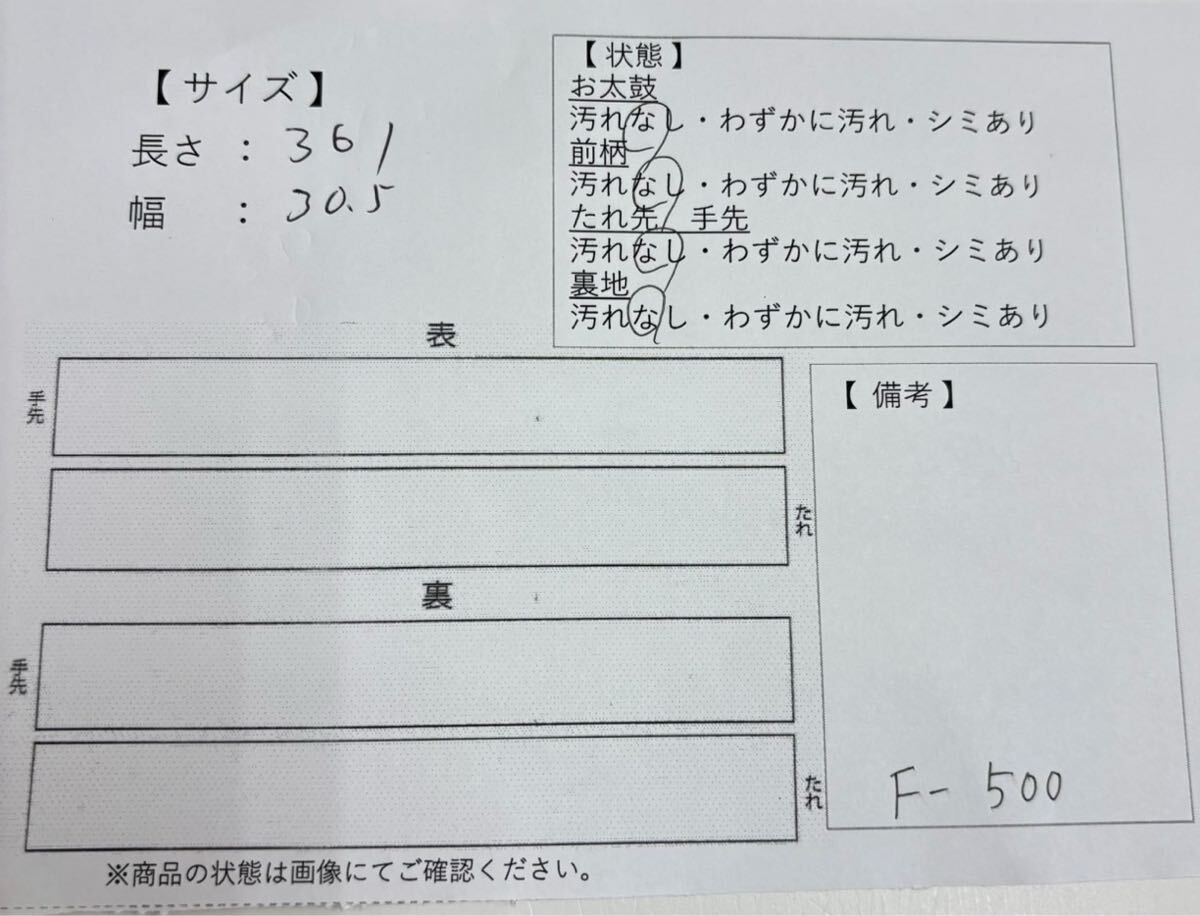 【 サイズ 】
長さ : 361
幅 : 30.5
【 状態 】
お太鼓
汚れなし・わずかに汚れ・シミあり
前柄
汚れなし・わずかに汚れ・シミあり
たれ先／手先
汚れなし・わずかに汚れ・シミあり
裏地
汚れなし・わずかに汚れ・シミあり
表
手先
たれ
裏
手先
たれ
【 備考 】
F- 500
※商品の状態は画像にてご確認ください。